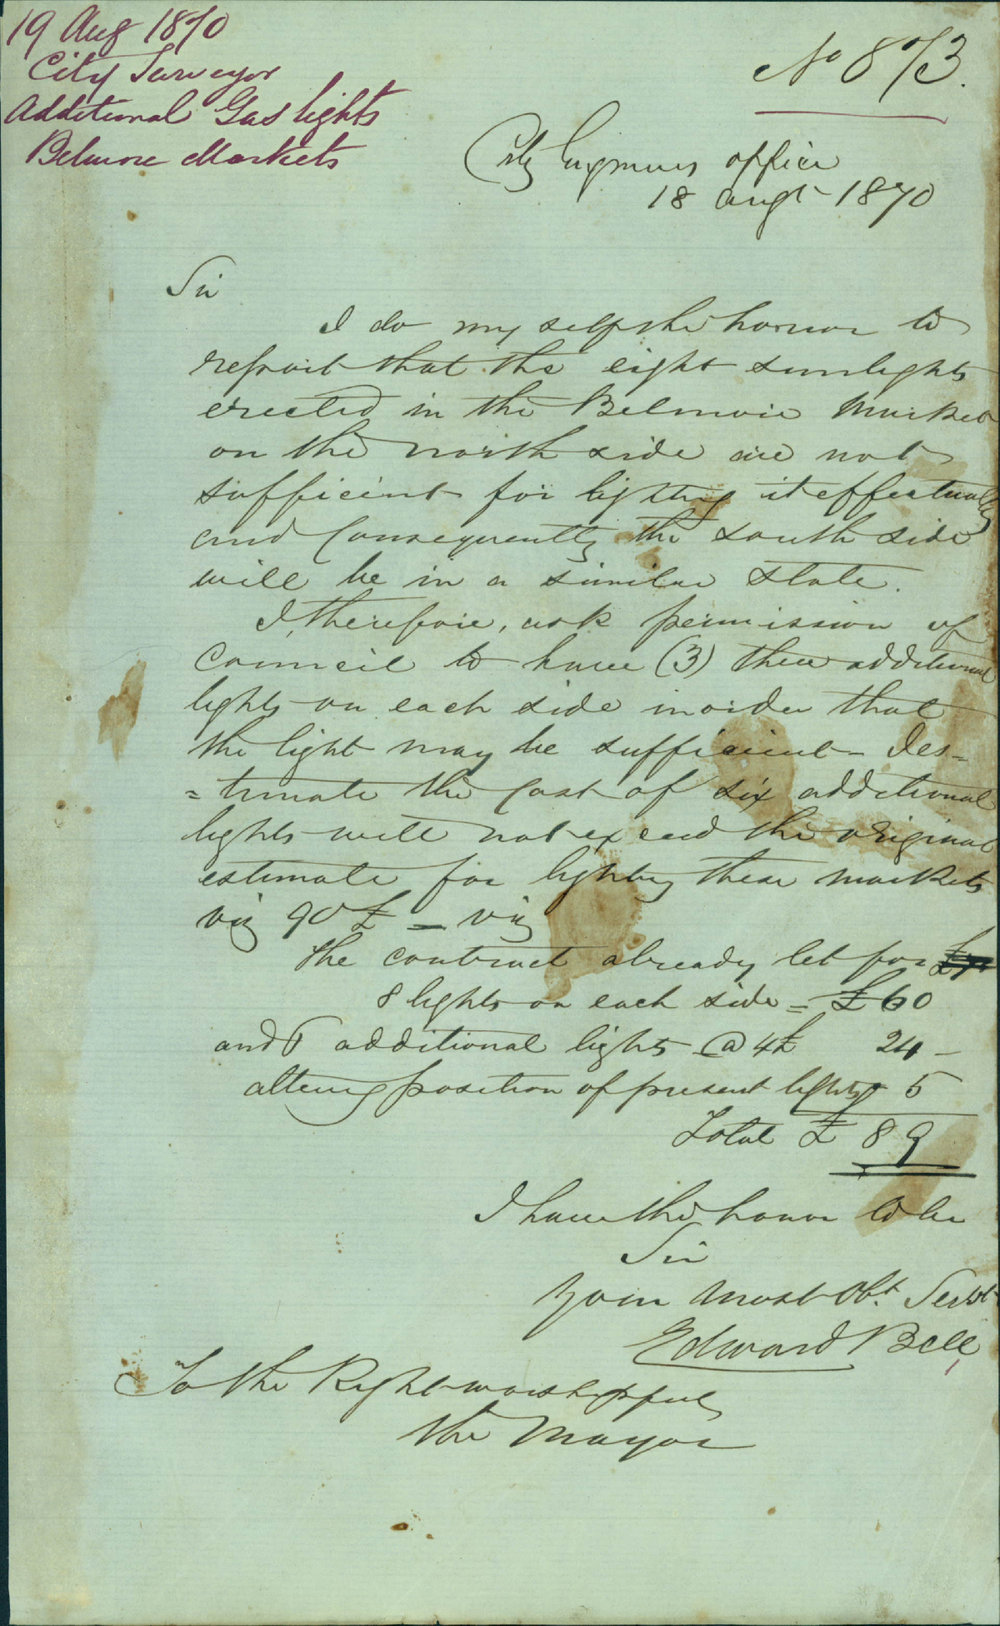 19 Aug 1870
City Surveyor
Additional Gas lights
Belmore Markets
No 873.
City Engineers office
18 Augt 1870
Sir
I do my self the honor to
report that the eight sunlights
erected in the Belmore Market
on the north side are not
sufficient for lighting it effectually
and Consequently the south side
will be in a similar state.
I, therefore, ask permission of
Council to have (3) three additional
lights on each side in order that
the light may be sufficient - I es=
=timate the cost of six additional
lights will not exceed the original
estimate for lighting these markets
viz 90£ - viz
The contract already let for
8 lights on each side = £60
and 6 additional lights @ 4£ 24 -
altering position of present lights 5
Total £ 89
I have the honor to be
Sir
Your Most Obt. Servt
Edward Bell
To the Right worshipful
the Mayor